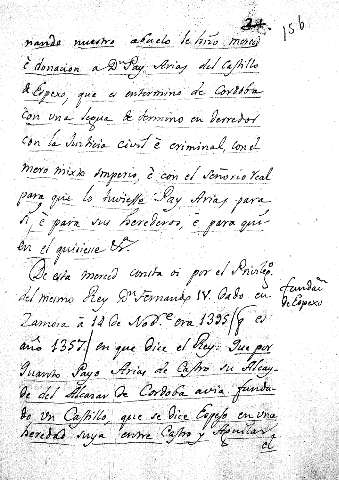 24.
156
nando nuestro abuelo le hizo merced
è donacion a Dn. Pay Arias del Castillo
de Espexo, que es entermino de Cordoba
con una legua de termino en derredor
con la Justicia civil è criminal, con el
mero mixto imperio, è con el Señorio real
para que lo huviesse Pay Arias para
sí, è para sus herederos, è para qui-
en el quisiese &a.
De esta merced consta oi por el Privilego.
del mesmo Rey Dn. Fernando IV. dado en
Zamora à 12 de Nove. era 1395/ q es
año 1357/ en que dice el Rey: Que por
Juanto Payo Arias de Castro su Alcay-
de del Alcazar de Cordoba avia funda-
do un Castillo, que se dice Espejo en una
heredad suya entre Castro y Aguilar
el
fundan.
de Espexo